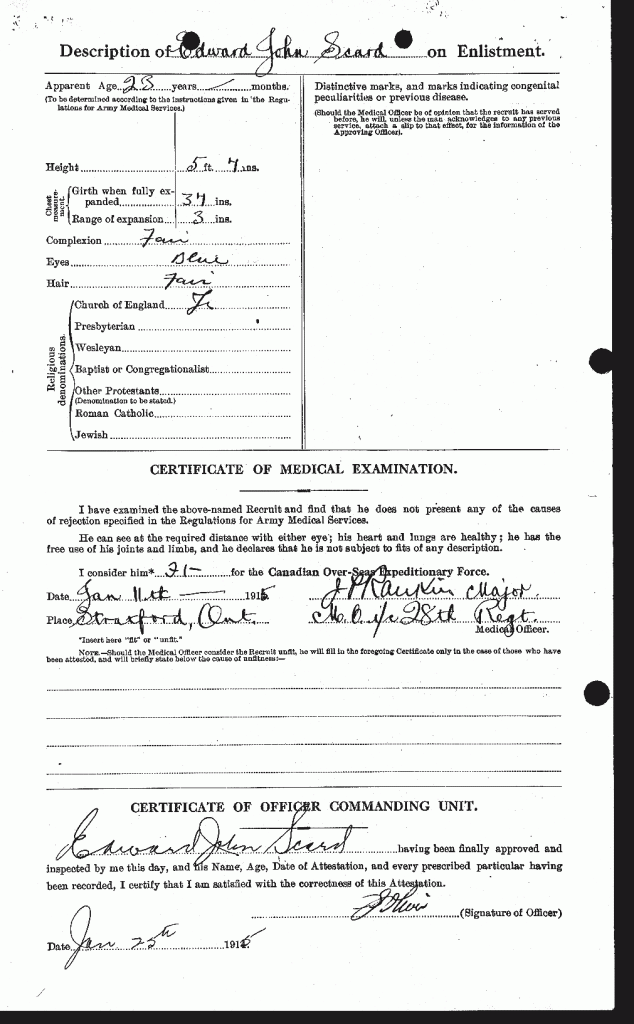 Description of Edward John Scard on Enlistment.
Apparent Age 23 years months.
(To be determined according to the instructions given in the Regulations for Army Medical Services.)
Height 5 ft. 7 ins.
Chest measurement.
Girth when fully expanded 37 ins.
Range of expansion 3 ins.
Complexion Fair
Eyes Blue
Hair Fair
Religious denominations.
Church of England
Presbyterian
Wesleyan
Baptist or Congregationalist
Other Protestants
(Denomination to be stated.)
Roman Catholic
Jewish
Distinctive marks, and marks indicating congenital
peculiarities or previous disease.
(Should the Medical Officer be of opinion that the recruit has served
before, he will, unless the man acknowledges to any previous
service, attach a slip to that effect, for the information of the
Approving Officer).
CERTIFICATE OF MEDICAL EXAMINATION.
I have examined the above-named Recruit and find that he does not present any of the causes
of rejection specified in the Regulations for Army Medical Services.
He can see at the required distance with either eye; his heart and lungs are healthy; he has the
free use of his joints and limbs, and he declares that he is not subject to fits of any description.
I consider him* Fit for the Canadian Over-Seas Expeditionary Force.
Date Jan 11th 1915 J P Rankin Major
Place Stratford, Ont. M.O. i/c 28th Regt.
Medical Officer.
*Insert here "fit" or "unfit."
NOTE.—Should the Medical Officer consider the Recruit unfit, he will fill in the foregoing Certificate only in the case of those who have
been attested, and will briefly state below the cause of unfitness:—
CERTIFICATE OF OFFICER COMMANDING UNIT.
Edward John Scard having been finally approved and
inspected by me this day, and his Name, Age, Date of Attestation, and every prescribed particular having
been recorded, I certify that I am satisfied with the correctness of this Attestation.
(Signature of Officer)
Date Jan 25th 1915